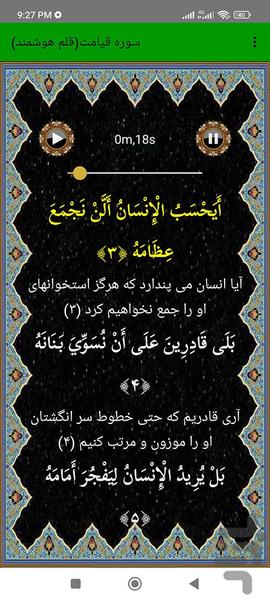 9:27 PM
سوره قیامت(قلم هوشمند)
0m,18s
أَيَحْسَبُ الْإِنْسَانُ أَلَّنْ نَجْمَعَ
عِظَامَهُ ﴿۳﴾
آیا انسان می پندارد که هرگز استخوانهای
او را جمع نخواهیم کرد (۳)
بَلَى قَادِرِينَ عَلَى أَنْ نُسَوِّيَ بَنَانَهُ
﴿۴﴾
آری قادریم که حتی خطوط سر انگشتان
او را موزون و مرتب کنیم (۴)
بَلْ يُرِيدُ الْإِنْسَانُ لِيَفْجُرَ أَمَامَهُ
﴿۵﴾